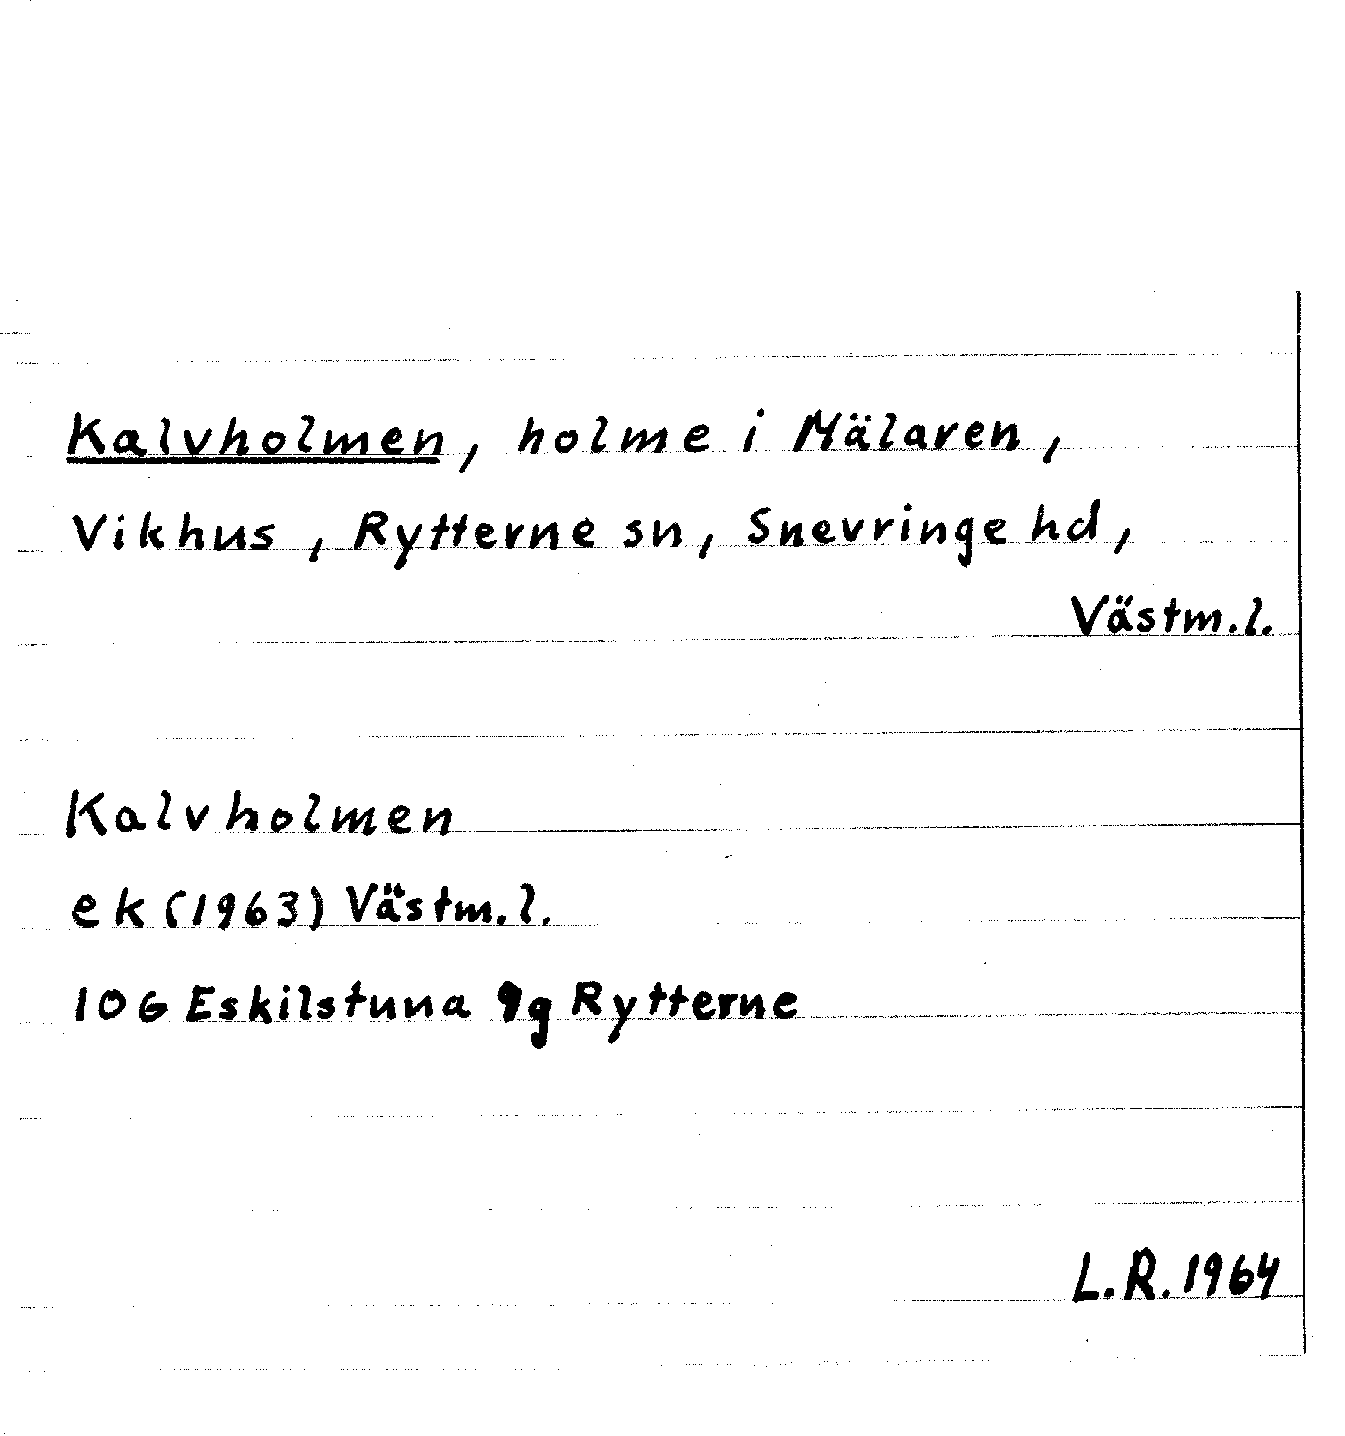 Kalvholmen, holme i Mälaren,
Vikhus, Rytterne sn, Snevringe hd,
Västm.l.
Kalvholmen
ek (1963) Västm.l.
10G Eskilstuna 9g Rytterne
L.R. 1964